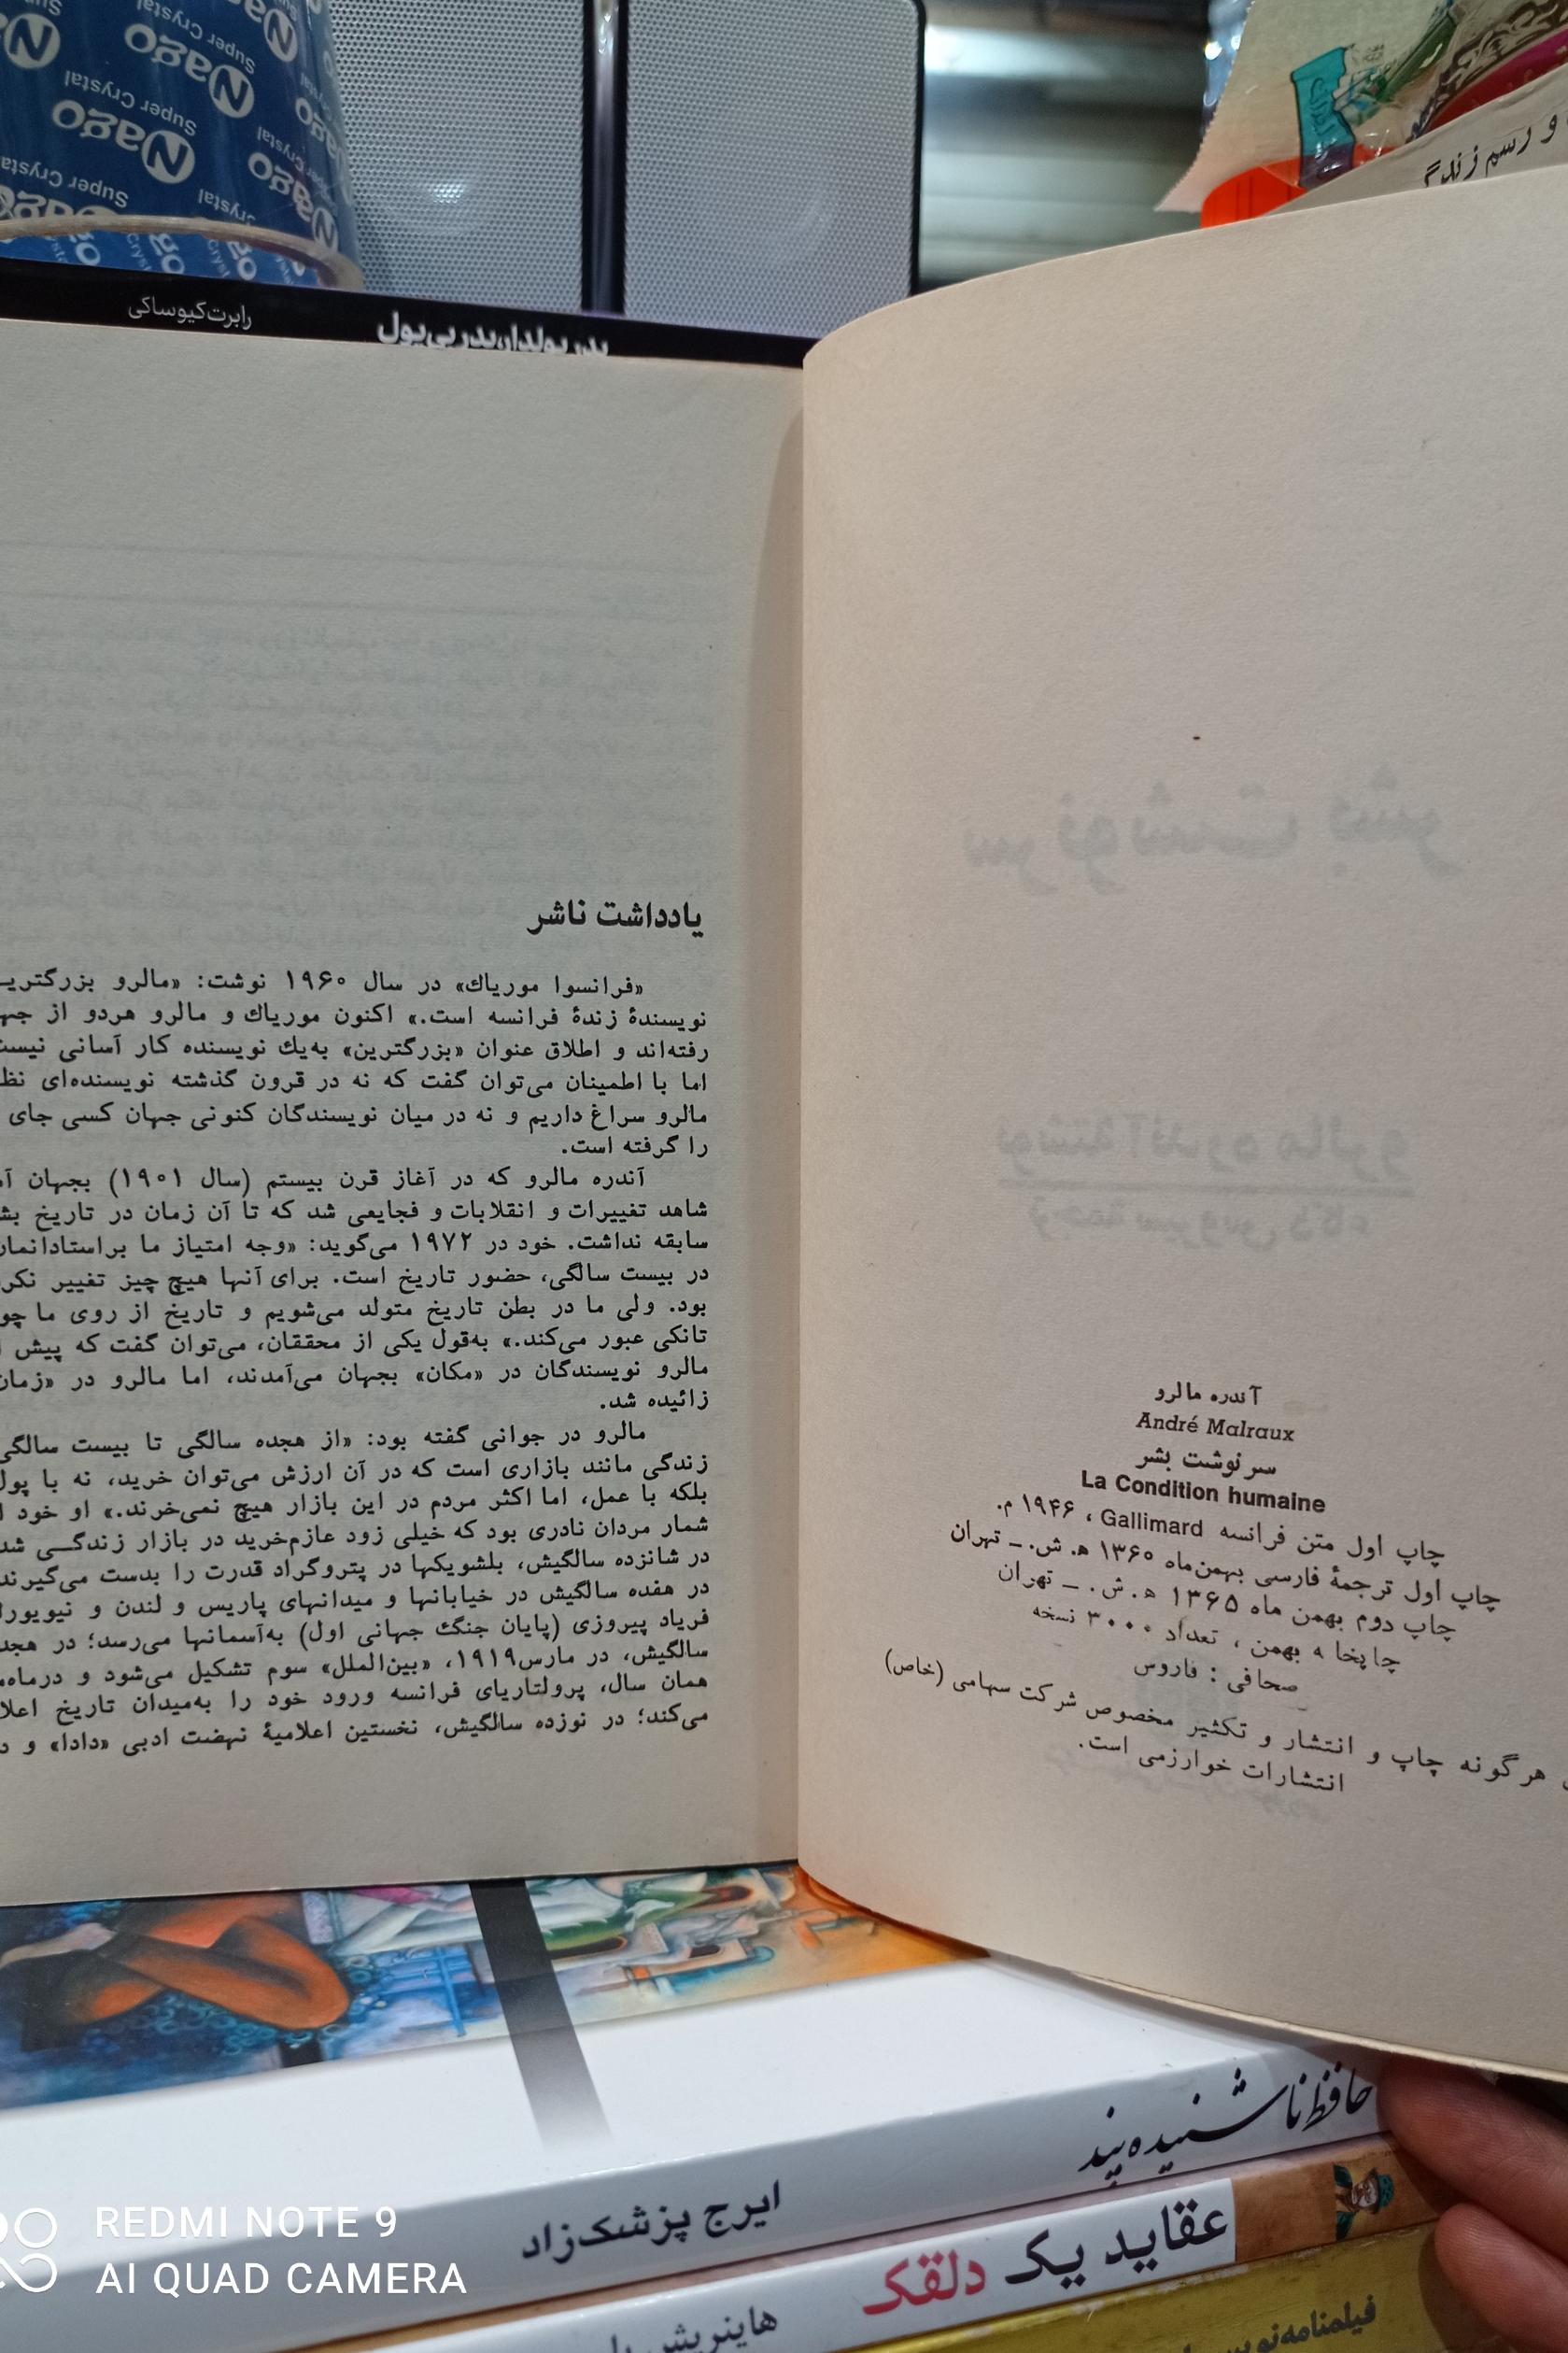 Nago
Super Crystal
Nago
Super Crystal
Nago
Super Crystal
و رسم زندگی
رابرت کیوساکی
پدر پولدار، پدر بی‌پول
آندره مالرو
André Malraux
سرنوشت بشر
La Condition humaine
چاپ اول متن فرانسه Gallimard ، ۱۹۴۶ م.
چاپ اول ترجمهٔ فارسی بهمن‌ماه ۱۳۶۰ ه. ش. ـ تهران
چاپ دوم بهمن ماه ۱۳۶۵ ه. ش. ـ تهران
چاپخا ه بهمن ، تعداد ۳۰۰۰ نسخه
صحافی : فاروس
هرگونه چاپ و انتشار و تکثیر مخصوص شرکت سهامی (خاص)
انتشارات خوارزمی است.
یادداشت ناشر
«فرانسوا موریاك» در سال ۱۹۶۰ نوشت: «مالرو بزرگتریـ
نویسندهٔ زندهٔ فرانسه است.» اکنون موریاك و مالرو هردو از جها
رفته‌اند و اطلاق عنوان «بزرگترین» به‌یك نویسنده کار آسانی نیست
اما با اطمینان می‌توان گفت که نه در قرون گذشته نویسنده‌ای نظ
مالرو سراغ داریم و نه در میان نویسندگان کنونی جهان کسی جای
را گرفته است.
آندره مالرو که در آغاز قرن بیستم (سال ۱۹۰۱) بجهان آمـ
شاهد تغییرات و انقلابات و فجایعی شد که تا آن زمان در تاریخ بشـ
سابقه نداشت. خود در ۱۹۷۲ می‌گوید: «وجه امتیاز ما براستادانمان
در بیست سالگی، حضور تاریخ است. برای آنها هیچ چیز تغییر نکر
بود. ولی ما در بطن تاریخ متولد می‌شویم و تاریخ از روی ما چو
تانکی عبور می‌کند.» به‌قول یکی از محققان، می‌توان گفت که پیش ا
مالرو نویسندگان در «مکان» بجهان می‌آمدند، اما مالرو در «زمان
زائیده شد.
مالرو در جوانی گفته بود: «از هجده سالگی تا بیست سالگی
زندگی مانند بازاری است که در آن ارزش می‌توان خرید، نه با پول
بلکه با عمل، اما اکثر مردم در این بازار هیچ نمی‌خرند.» او خود ا
شمار مردان نادری بود که خیلی زود عازم‌خرید در بازار زندگـی شد
در شانزده سالگیش، بلشویکها در پتروگراد قدرت را بدست می‌گیرند
در هفده سالگیش در خیابانها و میدانهای پاریس و لندن و نیویورك
فریاد پیروزی (پایان جنگ جهانی اول) به‌آسمانها می‌رسد؛ در هجد
سالگیش، در مارس۱۹۱۹، «بین‌الملل» سوم تشکیل می‌شود و درماه‌مـ
همان سال، پرولتاریای فرانسه ورود خود را به‌میدان تاریخ اعلا
می‌کند؛ در نوزده سالگیش، نخستین اعلامیهٔ نهضت ادبی «دادا» و د
حافظ ناشنیده پند
ایرج پزشک‌زاد
عقاید یک دلقک
هاینریش
فیلمنامه‌نویسی
REDMI NOTE 9
AI QUAD CAMERA